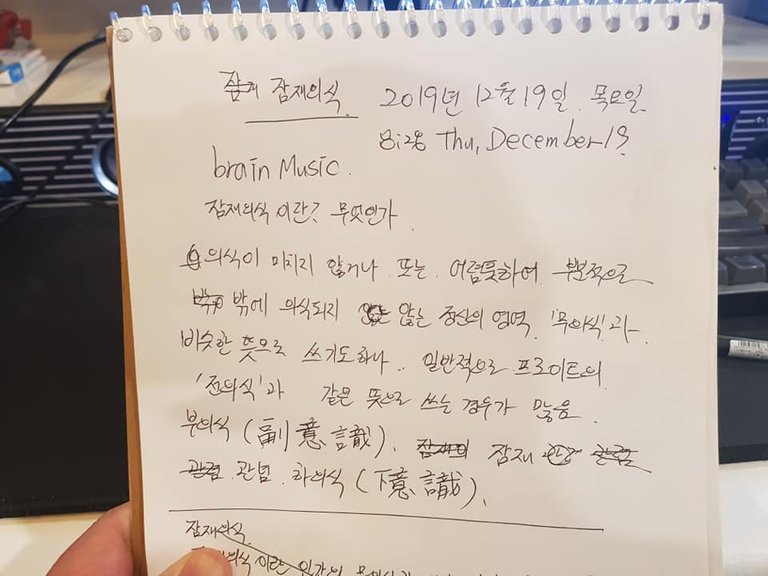 잠재의식. 2019년 12월 19일. 목요일.
8:28 Thu, December 19
brain Music.
잠재의식이란? 무엇인가.
의식이 미치지 않거나 또는 어렴풋하여 부분적으로
밖에 의식되지 않는 정신의 영역. '무의식'과
비슷한 뜻으로 쓰기도하나.. 일반적으로 프로이트의
'전의식'과 같은 뜻으로 쓰는 경우가 많음.
부의식(副意識). 잠재
관념. 하의식(下意識).
잠재의식.